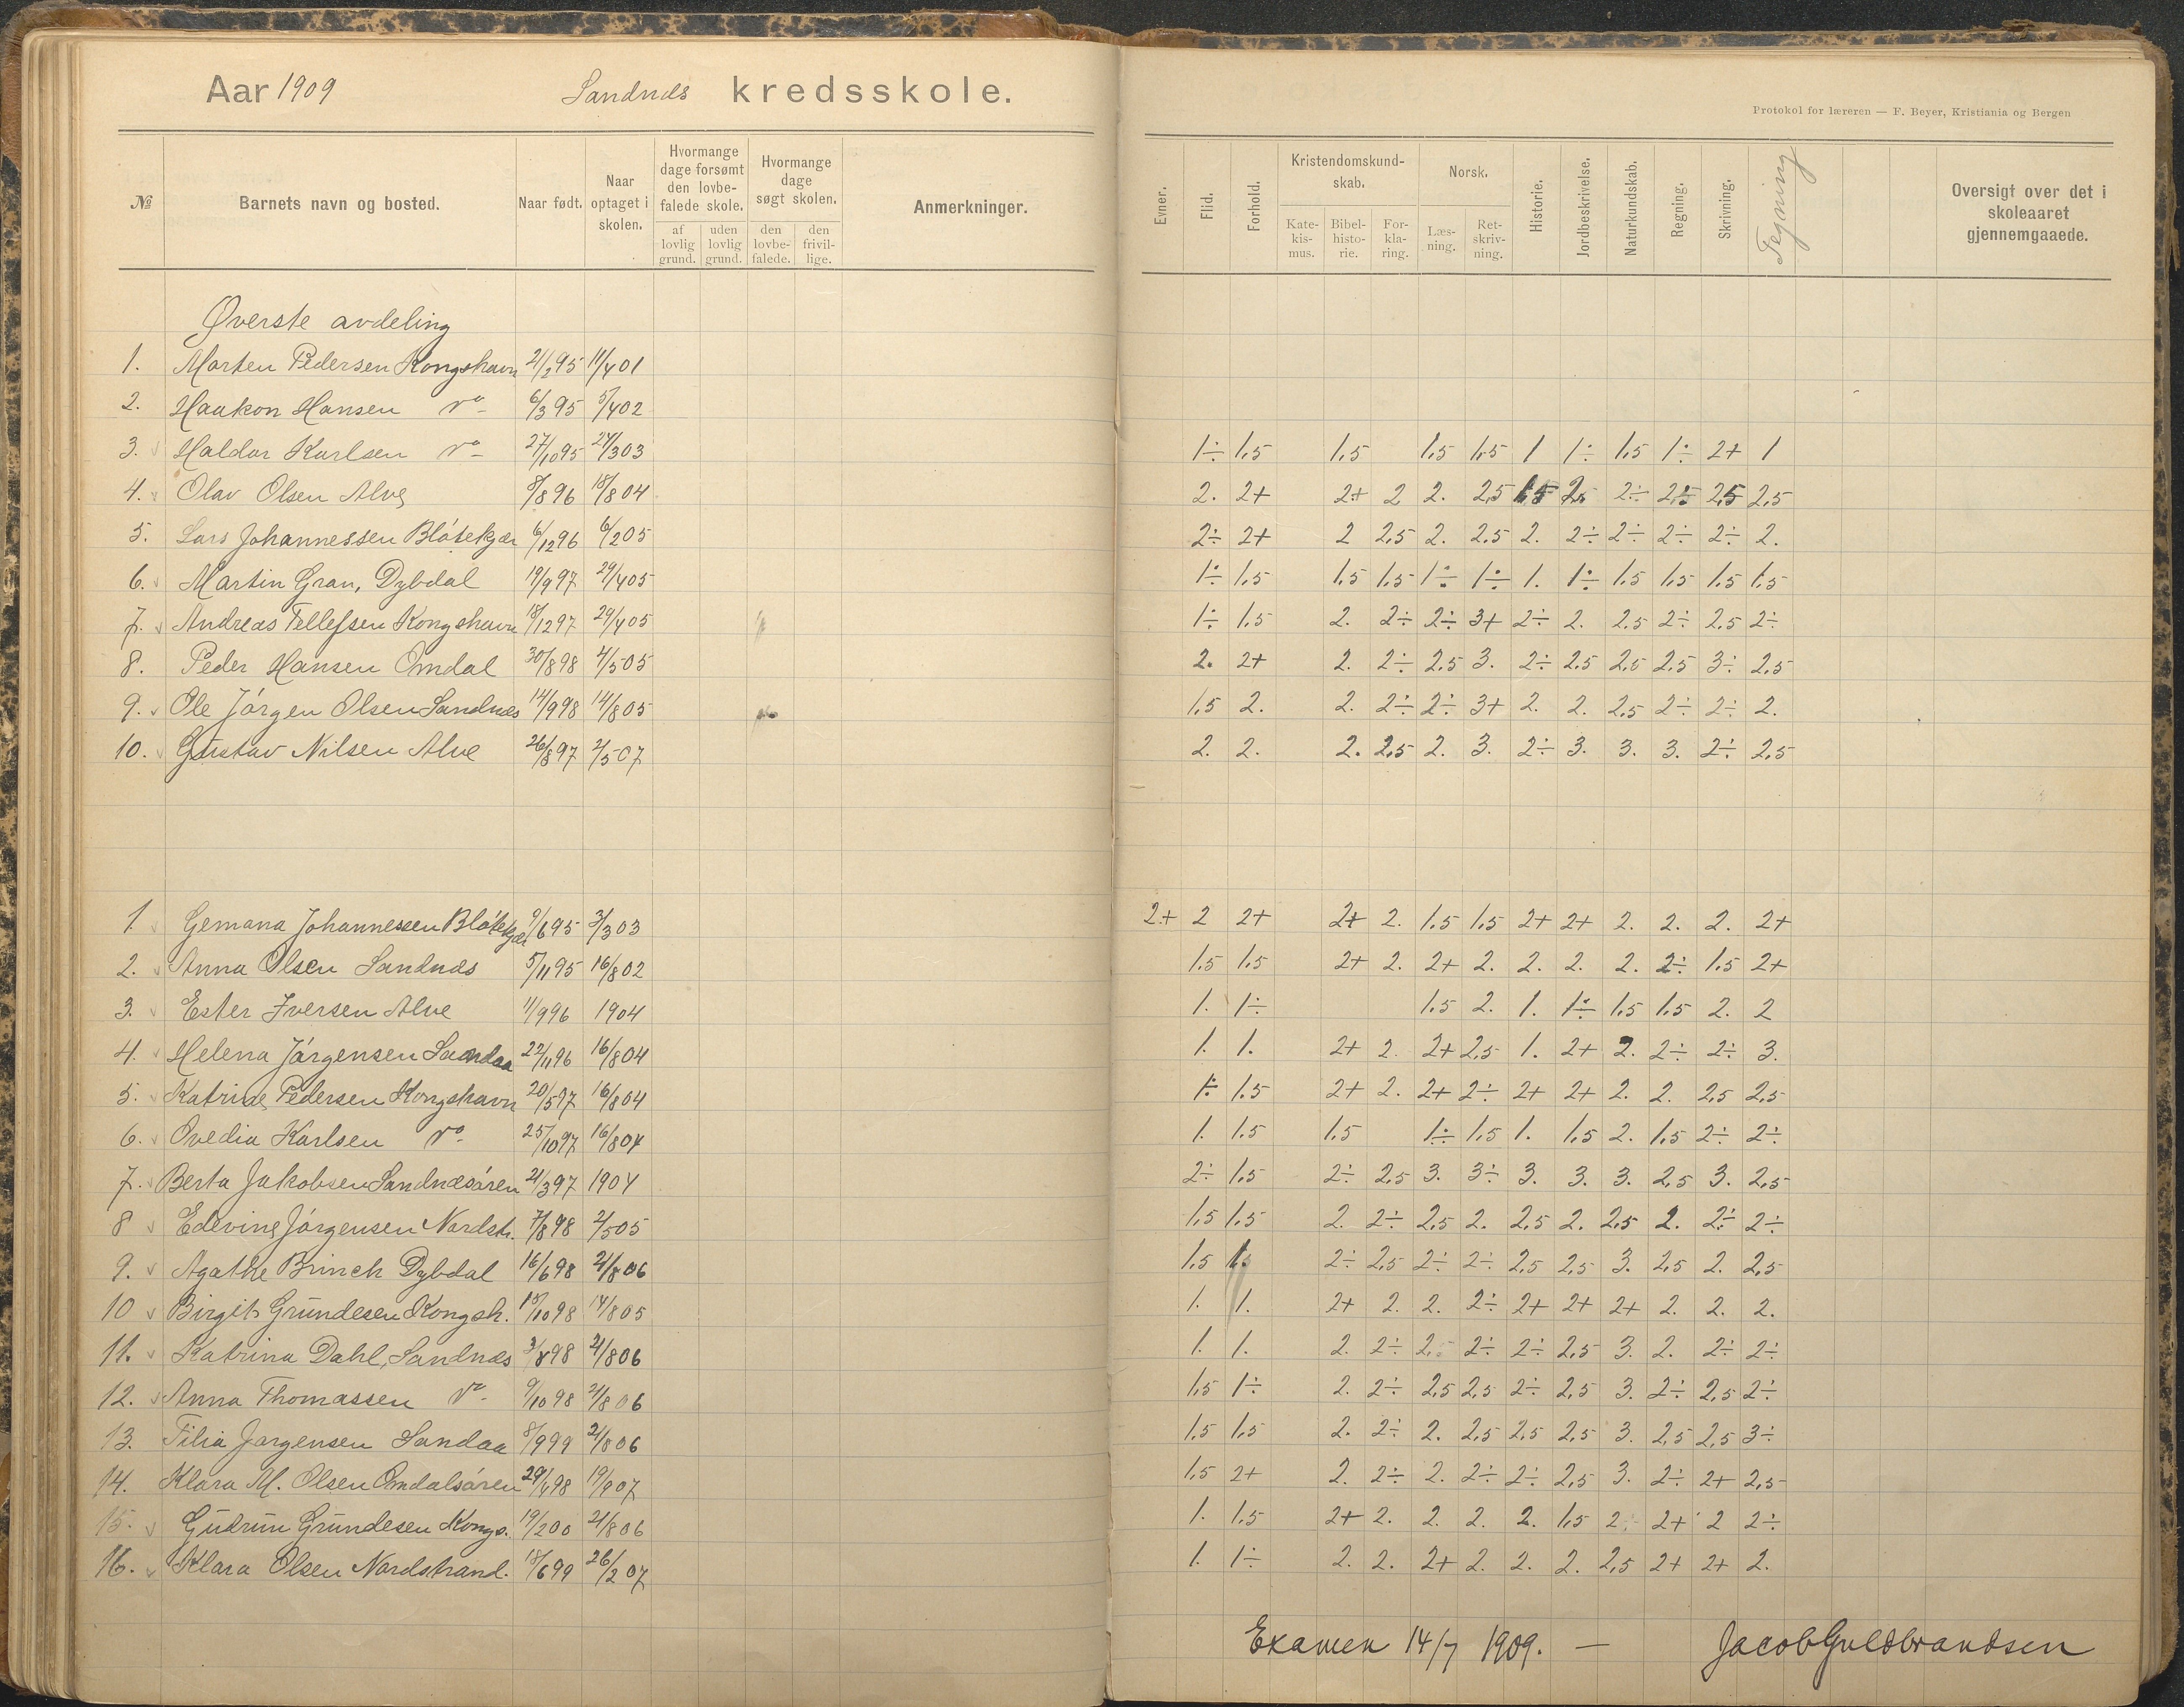 Aar 1909 Sandnæs kredsskole.
Protokol for læreren — F. Beyer, Kristiania og Bergen
№ Barnets navn og bosted. Naar født. Naar optaget i skolen. Hvormange dage forsømt den lovbefalede skole. af lovlig grund. uden lovlig grund. Hvormange dage søgt skolen. den lovbefalede. den frivillige. Anmerkninger.
Evner. Flid. Forhold. Kristendomskundskab. Katekismus. Bibelhistorie. Forklaring. Norsk. Læsning. Retskrivning. Historie. Jordbeskrivelse. Naturkundskab. Regning. Skrivning. Tegning Oversigt over det i skoleaaret gjennemgaaede.
Øverste avdeling
1. Morten Pedersen Kongshavn 21/2 95 11/4 01
2. Haakon Hansen do 6/3 95 5/4 02
3. Haldor Karlsen do 27/10 95 24/3 03 1÷ 1,5 1,5 1,5 1,5 1 1÷ 1,5 1÷ 2+ 1
4. Olav Olsen Alve 8/8 96 18/8 04 2. 2+ 2+ 2 2. 2,5 1,5 2,5 2÷ 2,5 2,5 2,5
5. Lars Johannessen Bløtekjær 6/12 96 6/2 05 2÷ 2+ 2 2,5 2. 2,5 2. 2÷ 2÷ 2÷ 2÷ 2.
6. Martin Gran, Dybdal 19/9 97 29/4 05 1÷ 1,5 1,5 1,5 1÷ 1÷ 1. 1÷ 1,5 1,5 1,5 1,5
7. Andreas Tellefsen Kongshavn 18/12 97 29/4 05 1÷ 1,5 2. 2÷ 2÷ 3+ 2÷ 2. 2,5 2÷ 2,5 2÷
8. Peder Hansen Omdal 30/8 98 4/5 05 2. 2+ 2. 2÷ 2,5 3. 2÷ 2,5 2,5 2,5 3÷ 2,5
9. Ole Jörgen Olsen Sandnæs 14/9 98 14/8 05 1,5 2. 2. 2÷ 2÷ 3+ 2. 2. 2,5 2÷ 2÷ 2.
10. Gustav Nilsen Alve 26/8 97 2/5 07 2. 2. 2. 2,5 2. 3. 2÷ 3. 3. 3. 2÷ 2,5
1. Gemana Johannessen Bløtekjær 9/6 95 3/3 03 2+ 2 2+ 2+ 2. 1,5 1,5 2+ 2+ 2. 2. 2. 2+
2. Anna Olsen Sandnæs 5/11 95 16/8 02 1,5 1,5 2+ 2. 2+ 2. 2. 2. 2. 2÷ 1,5 2+
3. Ester Iversen Alve 11/9 96 1904 1. 1÷ 1,5 2. 1. 1÷ 1,5 1,5 2. 2
4. Helena Jörgensen Sandaa 22/11 96 16/8 04 1. 1. 2+ 2. 2+ 2,5 1. 2+ 2. 2÷ 2÷ 3.
5. Katrine Pedersen Kongshavn 20/5 97 16/8 04 1÷ 1,5 2+ 2. 2+ 2÷ 2+ 2+ 2. 2. 2,5 2,5
6. Ovedia Karlsen do 25/10 97 16/8 04 1. 1,5 1,5 1÷ 1,5 1. 1,5 2. 1,5 2÷ 2÷
7. Berta Jakobsen Sandnæsören 21/3 97 1904 2÷ 1,5 2÷ 2,5 3. 3÷ 3. 3. 3. 2,5 3. 2,5
8 Edevine Jörgensen Nordstr. 7/8 98 2/5 05 1,5 1,5 2. 2÷ 2,5 2. 2,5 2. 2,5 2. 2÷ 2÷
9. Agathe Brinch Dybdal 16/6 98 21/8 06 1,5 1. 2÷ 2,5 2÷ 2÷ 2,5 2,5 3. 2,5 2. 2,5
10 Birgit Grundesen Kongsh. 15/10 98 14/8 05 1. 1. 2+ 2. 2. 2÷ 2+ 2+ 2+ 2. 2. 2.
11. Katrina Dahl, Sandnæs 3/8 98 21/8 06 1. 1. 2. 2÷ 2. 2÷ 2÷ 2,5 3. 2. 2÷ 2÷
12. Anna Thomassen do 9/10 98 21/8 06 1,5 1÷ 2. 2÷ 2,5 2,5 2÷ 2,5 3. 2÷ 2,5 2÷
13. Tilia Jørgensen Sandaa 8/9 99 21/8 06 1,5 1,5 2. 2÷ 2. 2,5 2,5 2,5 3. 2,5 2,5 3÷
14. Klara M. Olsen Omdalsören 29/4 98 19/9 07 1,5 2+ 2. 2÷ 2. 2÷ 2÷ 2,5 3. 2÷ 2+ 2,5
15. Gudrun Grundesen Kongs. 19/2 00 21/8 06 1. 1,5 2+ 2. 2. 2. 2. 1,5 2. 2+ 2 2÷
16. Klara Olsen Nordstrand. 18/6 99 26/2 07 1. 1÷ 2. 2. 2+ 2. 2. 2. 2,5 2+ 2+ 2.
Examen 14/7 1909. — Jacob Guldbrandsen